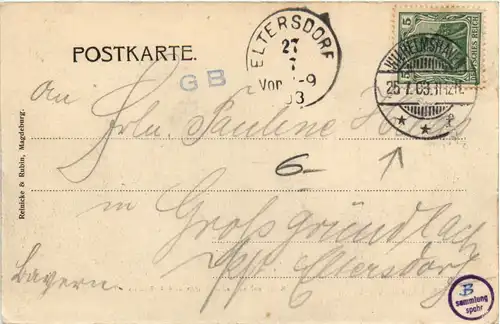 POSTKARTE.
ELTERSDORF
27
7
Vor. -9
03
GB
5
DEUTSCHES REICH
WILHELMSHAVEN
25.7.03.11-12N.
An
Frln. Pauline
6-
in
Großgründlach
pp. Eltersdorf
Bayern.
Reinicke & Rubin, Magdeburg.
B
sammlung
spohr